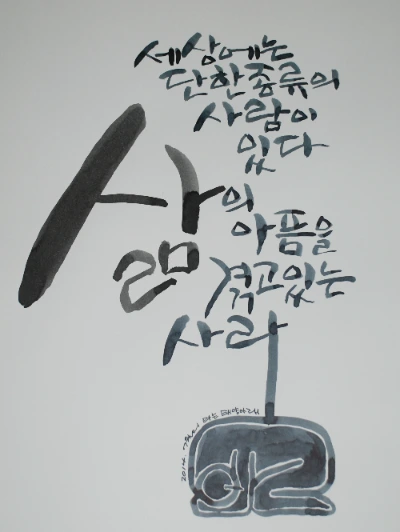 세상에는
단한종류의
사람이
있다
삶의
아픔을
겪고있는
사람
2014.